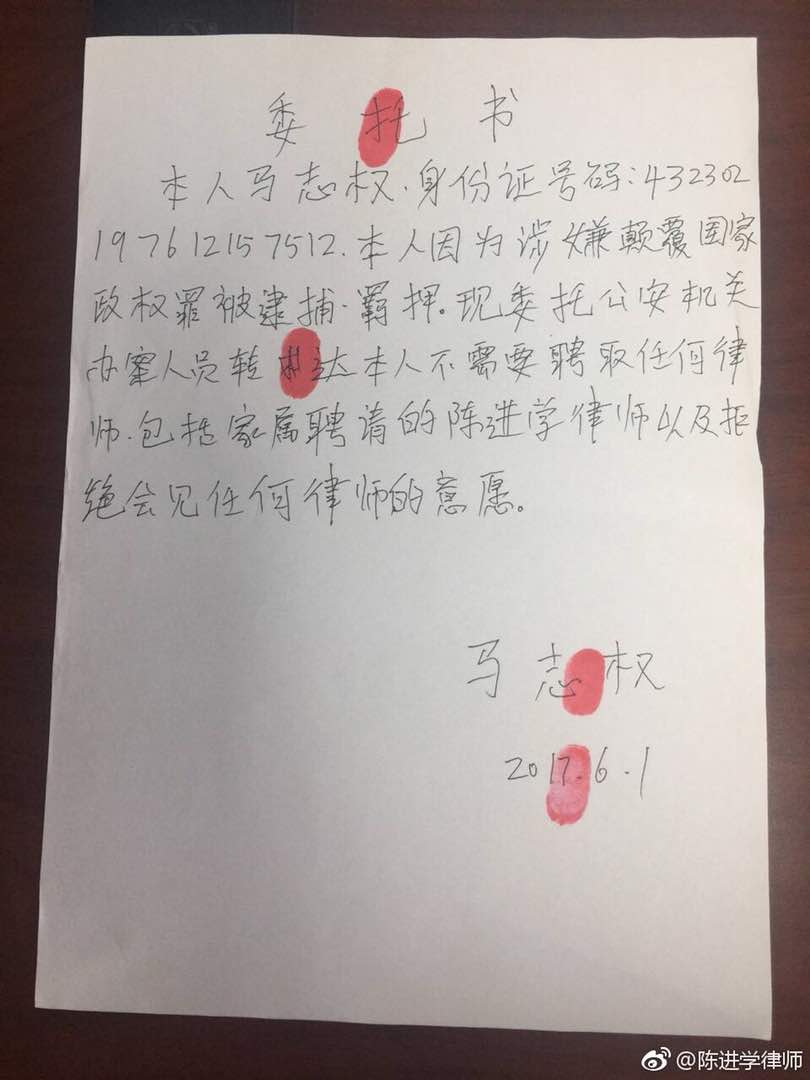 委托书
本人马志权.身份证号码:432302
197612157512.本人因为涉嫌颠覆国家
政权罪被逮捕.羁押。现委托公安机关
办案人员转达本人不需要聘取任何律
师.包括家属聘请的陈进学律师以及拒
绝会见任何律师的意愿。
马志权
2017.6.1
@陈进学律师